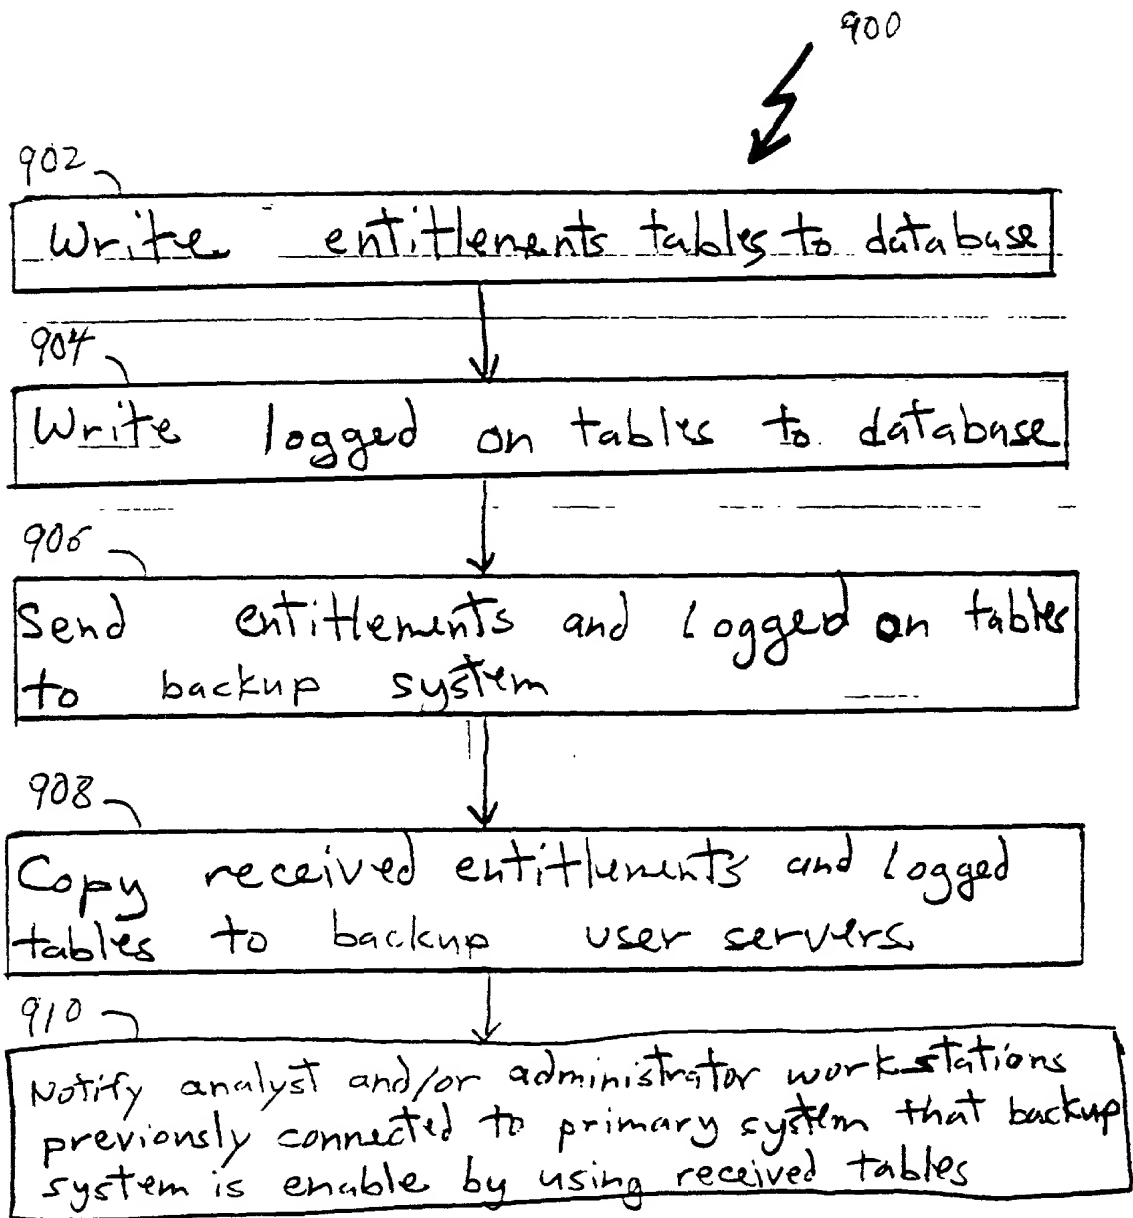 900
902
Write entitlements tables to database
904
Write logged on tables to database
906
Send entitlements and logged on tables
to backup system
908
Copy received entitlements and logged
tables to backup user servers
910
Notify analyst and/or administrator workstations
previously connected to primary system that backup
system is enable by using received tables